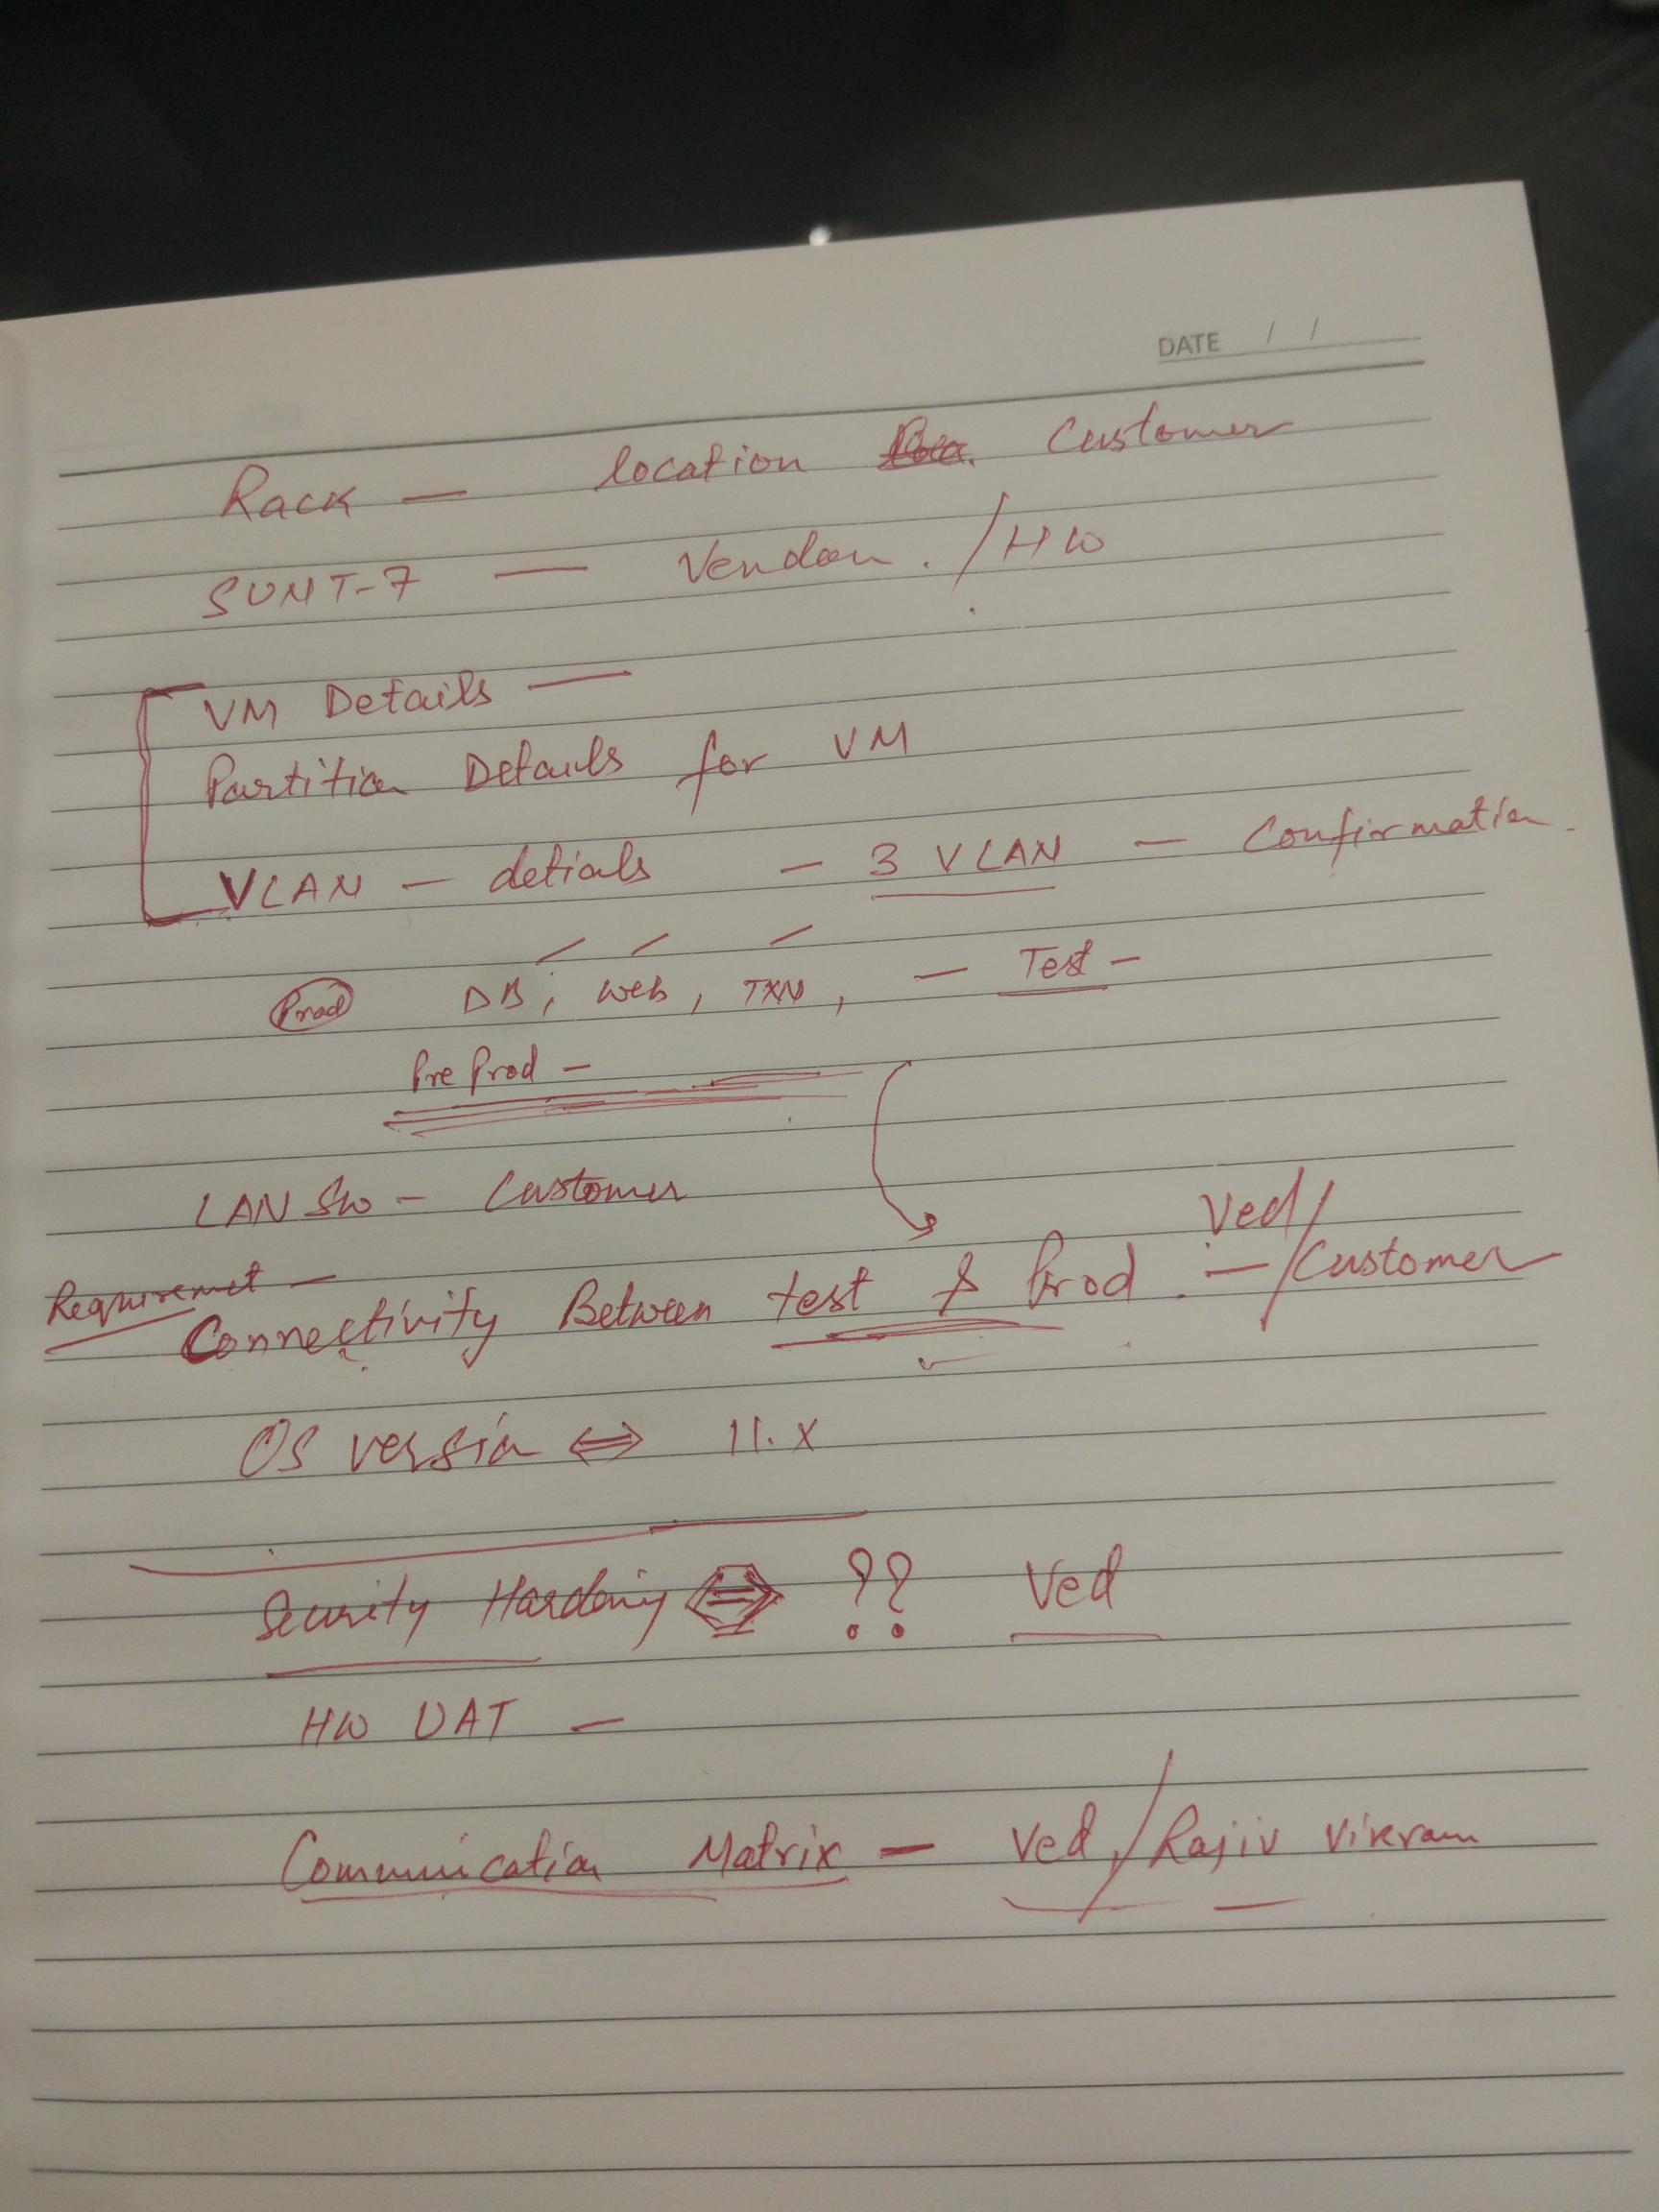 DATE / /
Rack — location Customer
SUNT-7 — Vendor. /HW
VM Details —
Partition Details for VM
VLAN — detials — 3 VLAN — Confirmation
Prod DB, Web, TXN, — Test —
Pre Prod —
LAN SW — Customer
Requiremet —
Ved/
Connectivity Between test & Prod. — /Customer
OS version ⇔ 11.X
Security Hardning ⇔ ?? Ved
HW UAT —
Communication Matrix — Ved/Rajiv Vikram